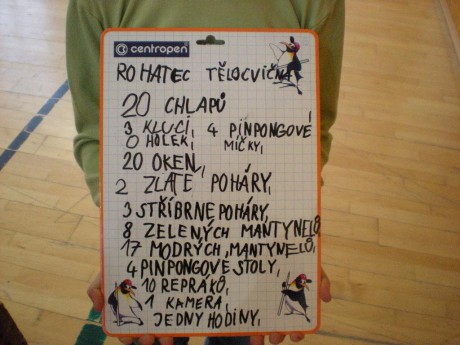 centropen
ROHATEC TĚLOCVIČNA
20 CHLAPŮ
3 KLUCI, 4 PINPONGOVÉ
0 HOLEK, MÍČKY,
20 OKEN,
2 ZLATÉ POHÁRY,
3 STŘÍBRNE POHÁRY,
8 ZELENÝCH MANTYNELŮ
17 MODRÝCH MANTYNELŮ,
4 PINPONGOVÉ STOLY,
10 REPRÁKŮ,
1 KAMERA,
JEDNY HODINY,